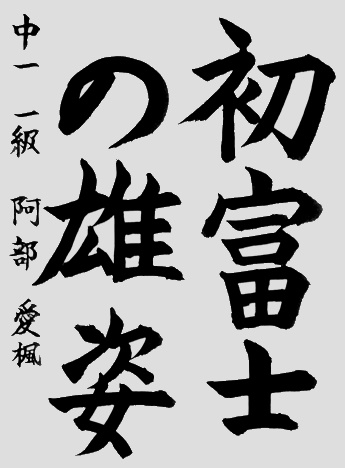 初富士
の雄姿
中一 一級 阿部 愛楓